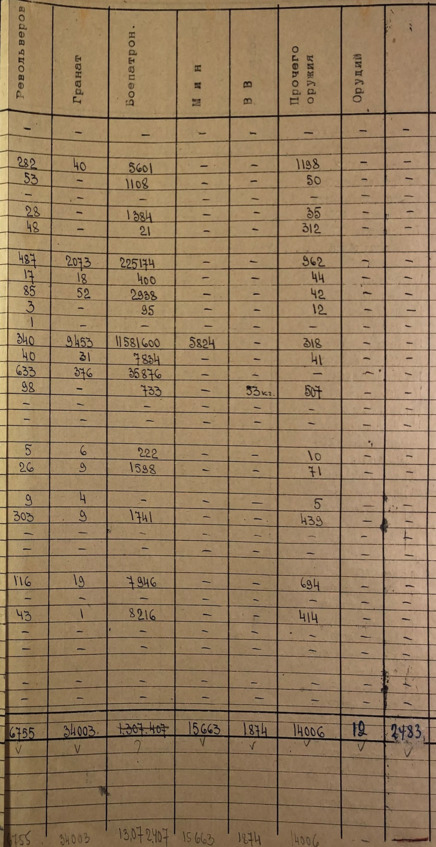 Револьверов Гранат Боепатрон. Мин ВВ Прочего оружия Орудий
- - - - - - - -
282 40 5601 - - 1198 - -
53 - 1108 - - 50 - -
- - - - - - - -
28 - 1384 - - 35 - -
48 - 21 - - 312 - -
487 2073 225174 - - 962 - -
17 18 400 - - 44 - -
85 52 2938 - - 42 - -
3 - 95 - - 12 - -
1 - - - - - - -
340 9453 11581600 5824 - 318 - -
40 31 7834 - - 41 - -
633 376 35876 - - - - -
98 - 733 - 53кг. 507 - -
- - - - - - - -
- - - - - - - -
5 6 222 - - 10 - -
26 9 1598 - - 71 - -
9 4 - - - 5 - -
303 9 1741 - - 439 - -
- - - - - - - -
- - - - - - - -
116 19 7946 - - 694 - -
- - - - - - - -
43 1 8216 - - 414 - -
- - - - - - - -
- - - - - - - -
- - - - - - - -
- - - - - - - -
6755 34003 1.307.407 15663 1874 14006 12 2483
6755 34003 13072407 15663 1874 14006 -